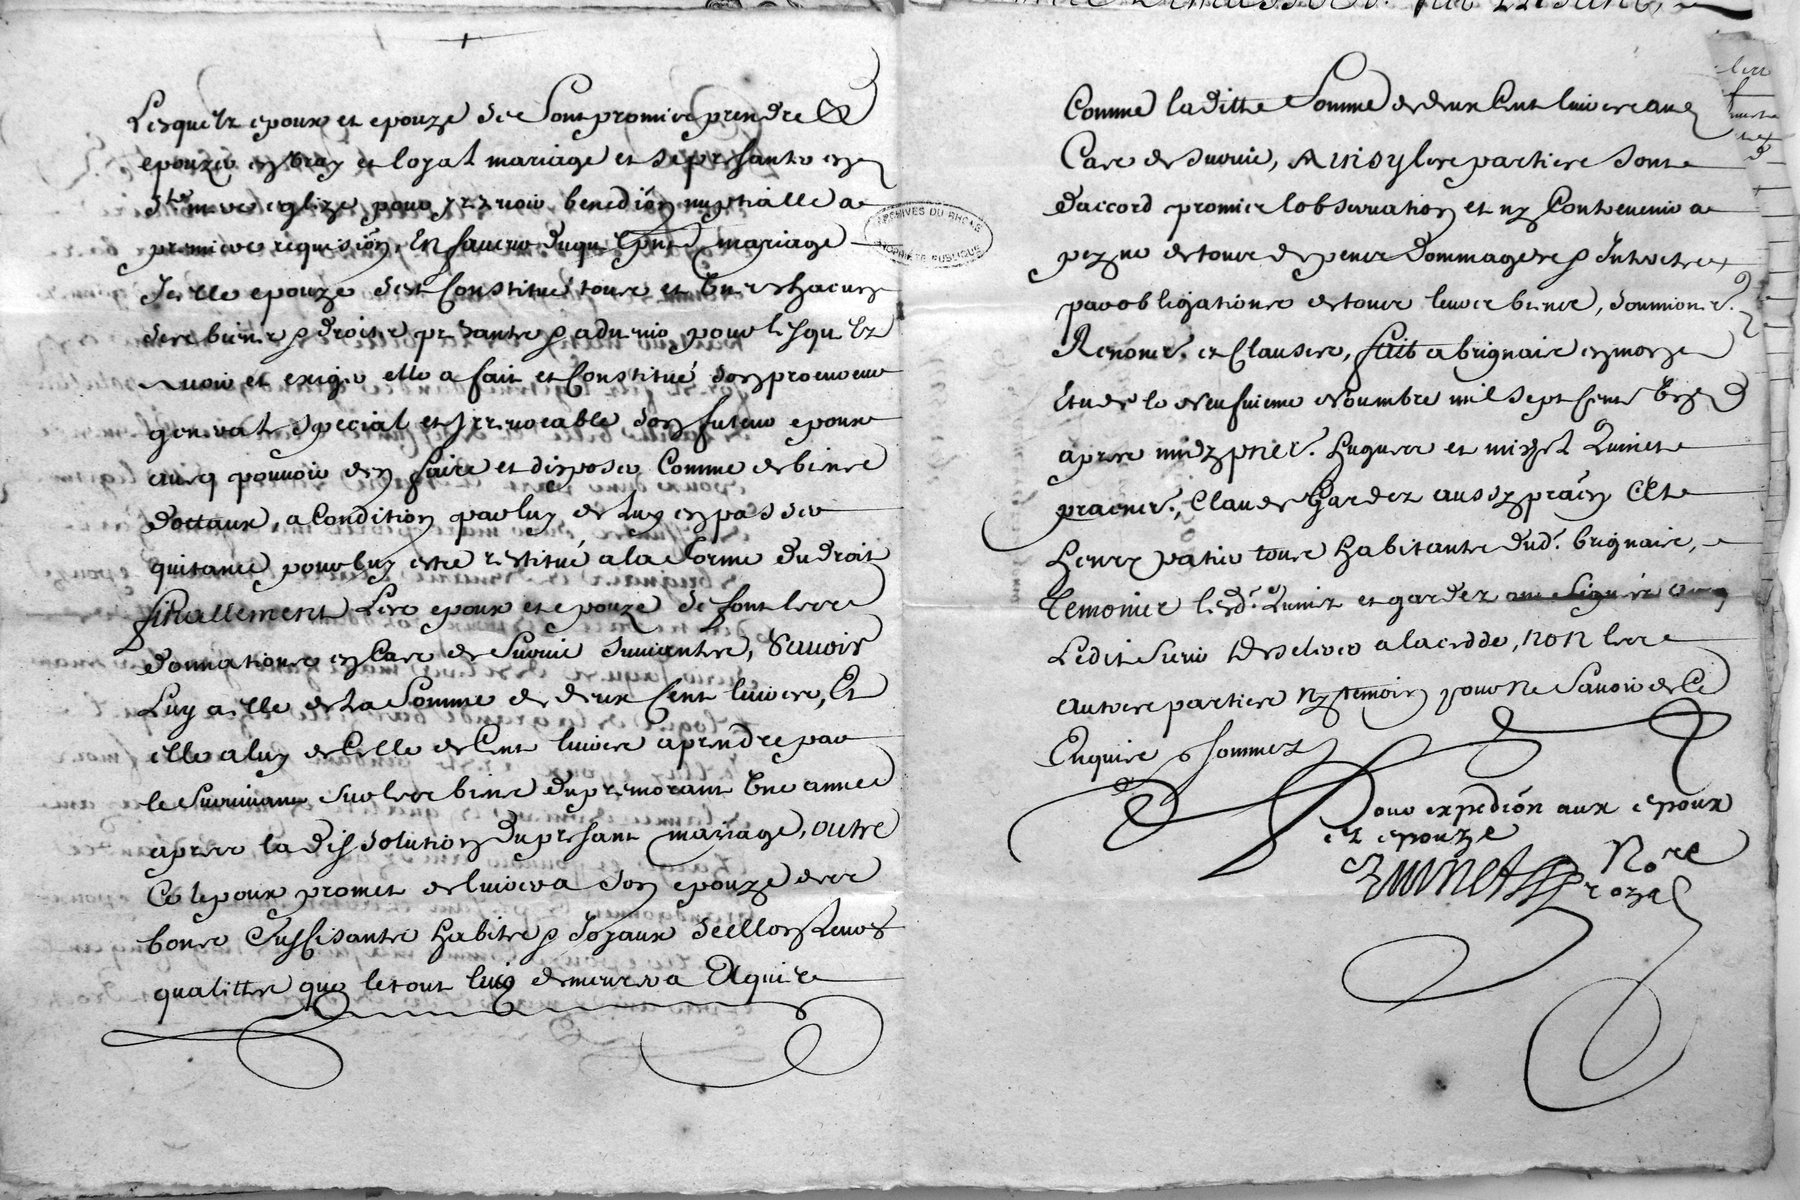 Lesquelz epoux et epouze se sont promis prendre &
epouzer en vray et loyal mariage et se presanter en
Ste mere eglize pour y recevoir benediõn nuptialle a
premiere requisiõn, En faveur duquel pnt mariage
Icelle epouze s'est Constitué tous et uns chacuns
ses biens & droits presants & advenir pour lesquelz
avoir et exiger elle a fait et Constitué son procureur
general special et Irrevocable son futeur epoux
avecq pouvoir d'en faire et disposer Comme de biens
dottaux, a Condition par luy de luy en passer
quitance pour luy estre restitué a la forme du droit
finallement Les epoux et epouze se font les
donnations en Cas de survie suivantes, Scavoir
Luy a elle de la somme de deux Cent livres, Et
elle a luy de Celle de Cent livres a prendre par
le survivant sur les biens du premorant Une année
apres la dissolution du presant mariage, outre
Ce lepoux promet de livrer a son epouze des
bons suffisants habits & Joyaux selon leurs
qualittes que le tout luy demeurera Acquis
ARCHIVES DU RHÔNE
PROPRIÉTÉ PUBLIQUE
Comme laditte somme de deux Cent livres au
Cas de survie, Ainsy les parties sont
d'accord promis lobservation et ny Contrevenir a
peyne de tous depens dommages & Interets
par obligations de tous leurs biens, soumions.
Renons. et Clauses, fait a brignais en mon
Etude le neufvieme novembre mil sept Cent Un
apres midy pnts. hugues et michel Quinet
praticns., Claude Gardez aussy praticn Et
Henry patio tous habitants dud. brignais,
Temoins lesd. Quinet et gardez ont signés avec
Ledit sieur a la cedde, non les
autres parties ny temoin pour ne savoir de Ce
Enquis & sommez
Pour expediõn aux epoux
et epouze
Quinet Nore
Royal